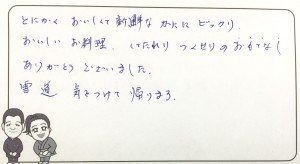 とにかく おいしくて 新鮮な かたに ビックリ.
おいしい お料理. いたれり つくせりの おもてなし
ありがとう ございました.
雪道 気をつけて 帰ります.